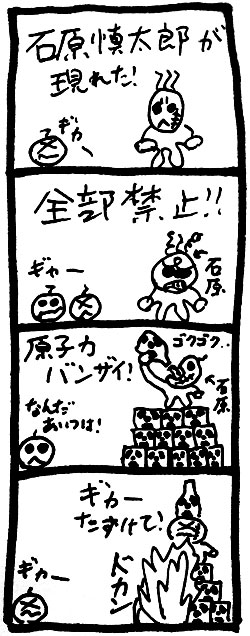 石原慎太郎が
現れた!
ギャー
全部禁止!!
ギャー
石原
原子力
バンザイ!
ゴクゴク..
石原
なんだ
あいつは!
ギャー
たすけて!
ドカン
ギャー